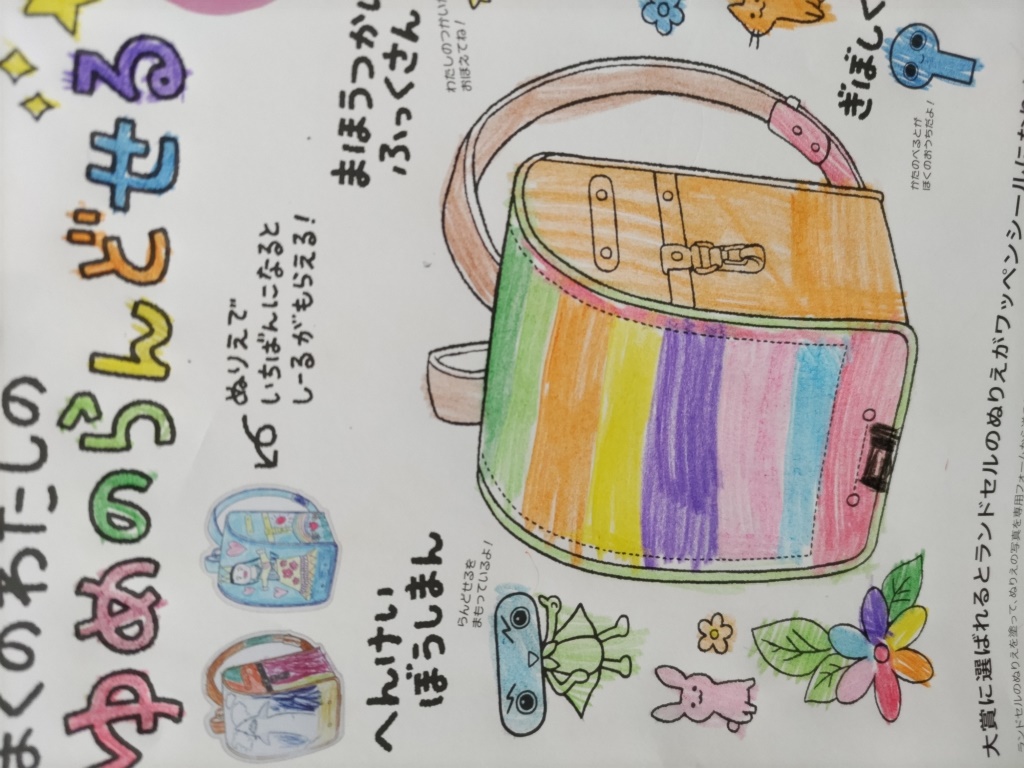 ぼくのわたしの
ゆめのらんどせる
ぬりえで
いちばんになると
しーるがもらえる!
へんけい
ぼうしまん
らんどせるを
まもっているよ!
まほうつかい
ふっくさん
わたしのつかい
おぼえてね!
ぎぼしく
かたのべるとが
ぼくのおうちだよ!
大賞に選ばれるとランドセルのぬりえがワッペンシールに
ランドセルのぬりえを塗って、ぬりえの写真を専用フォーム